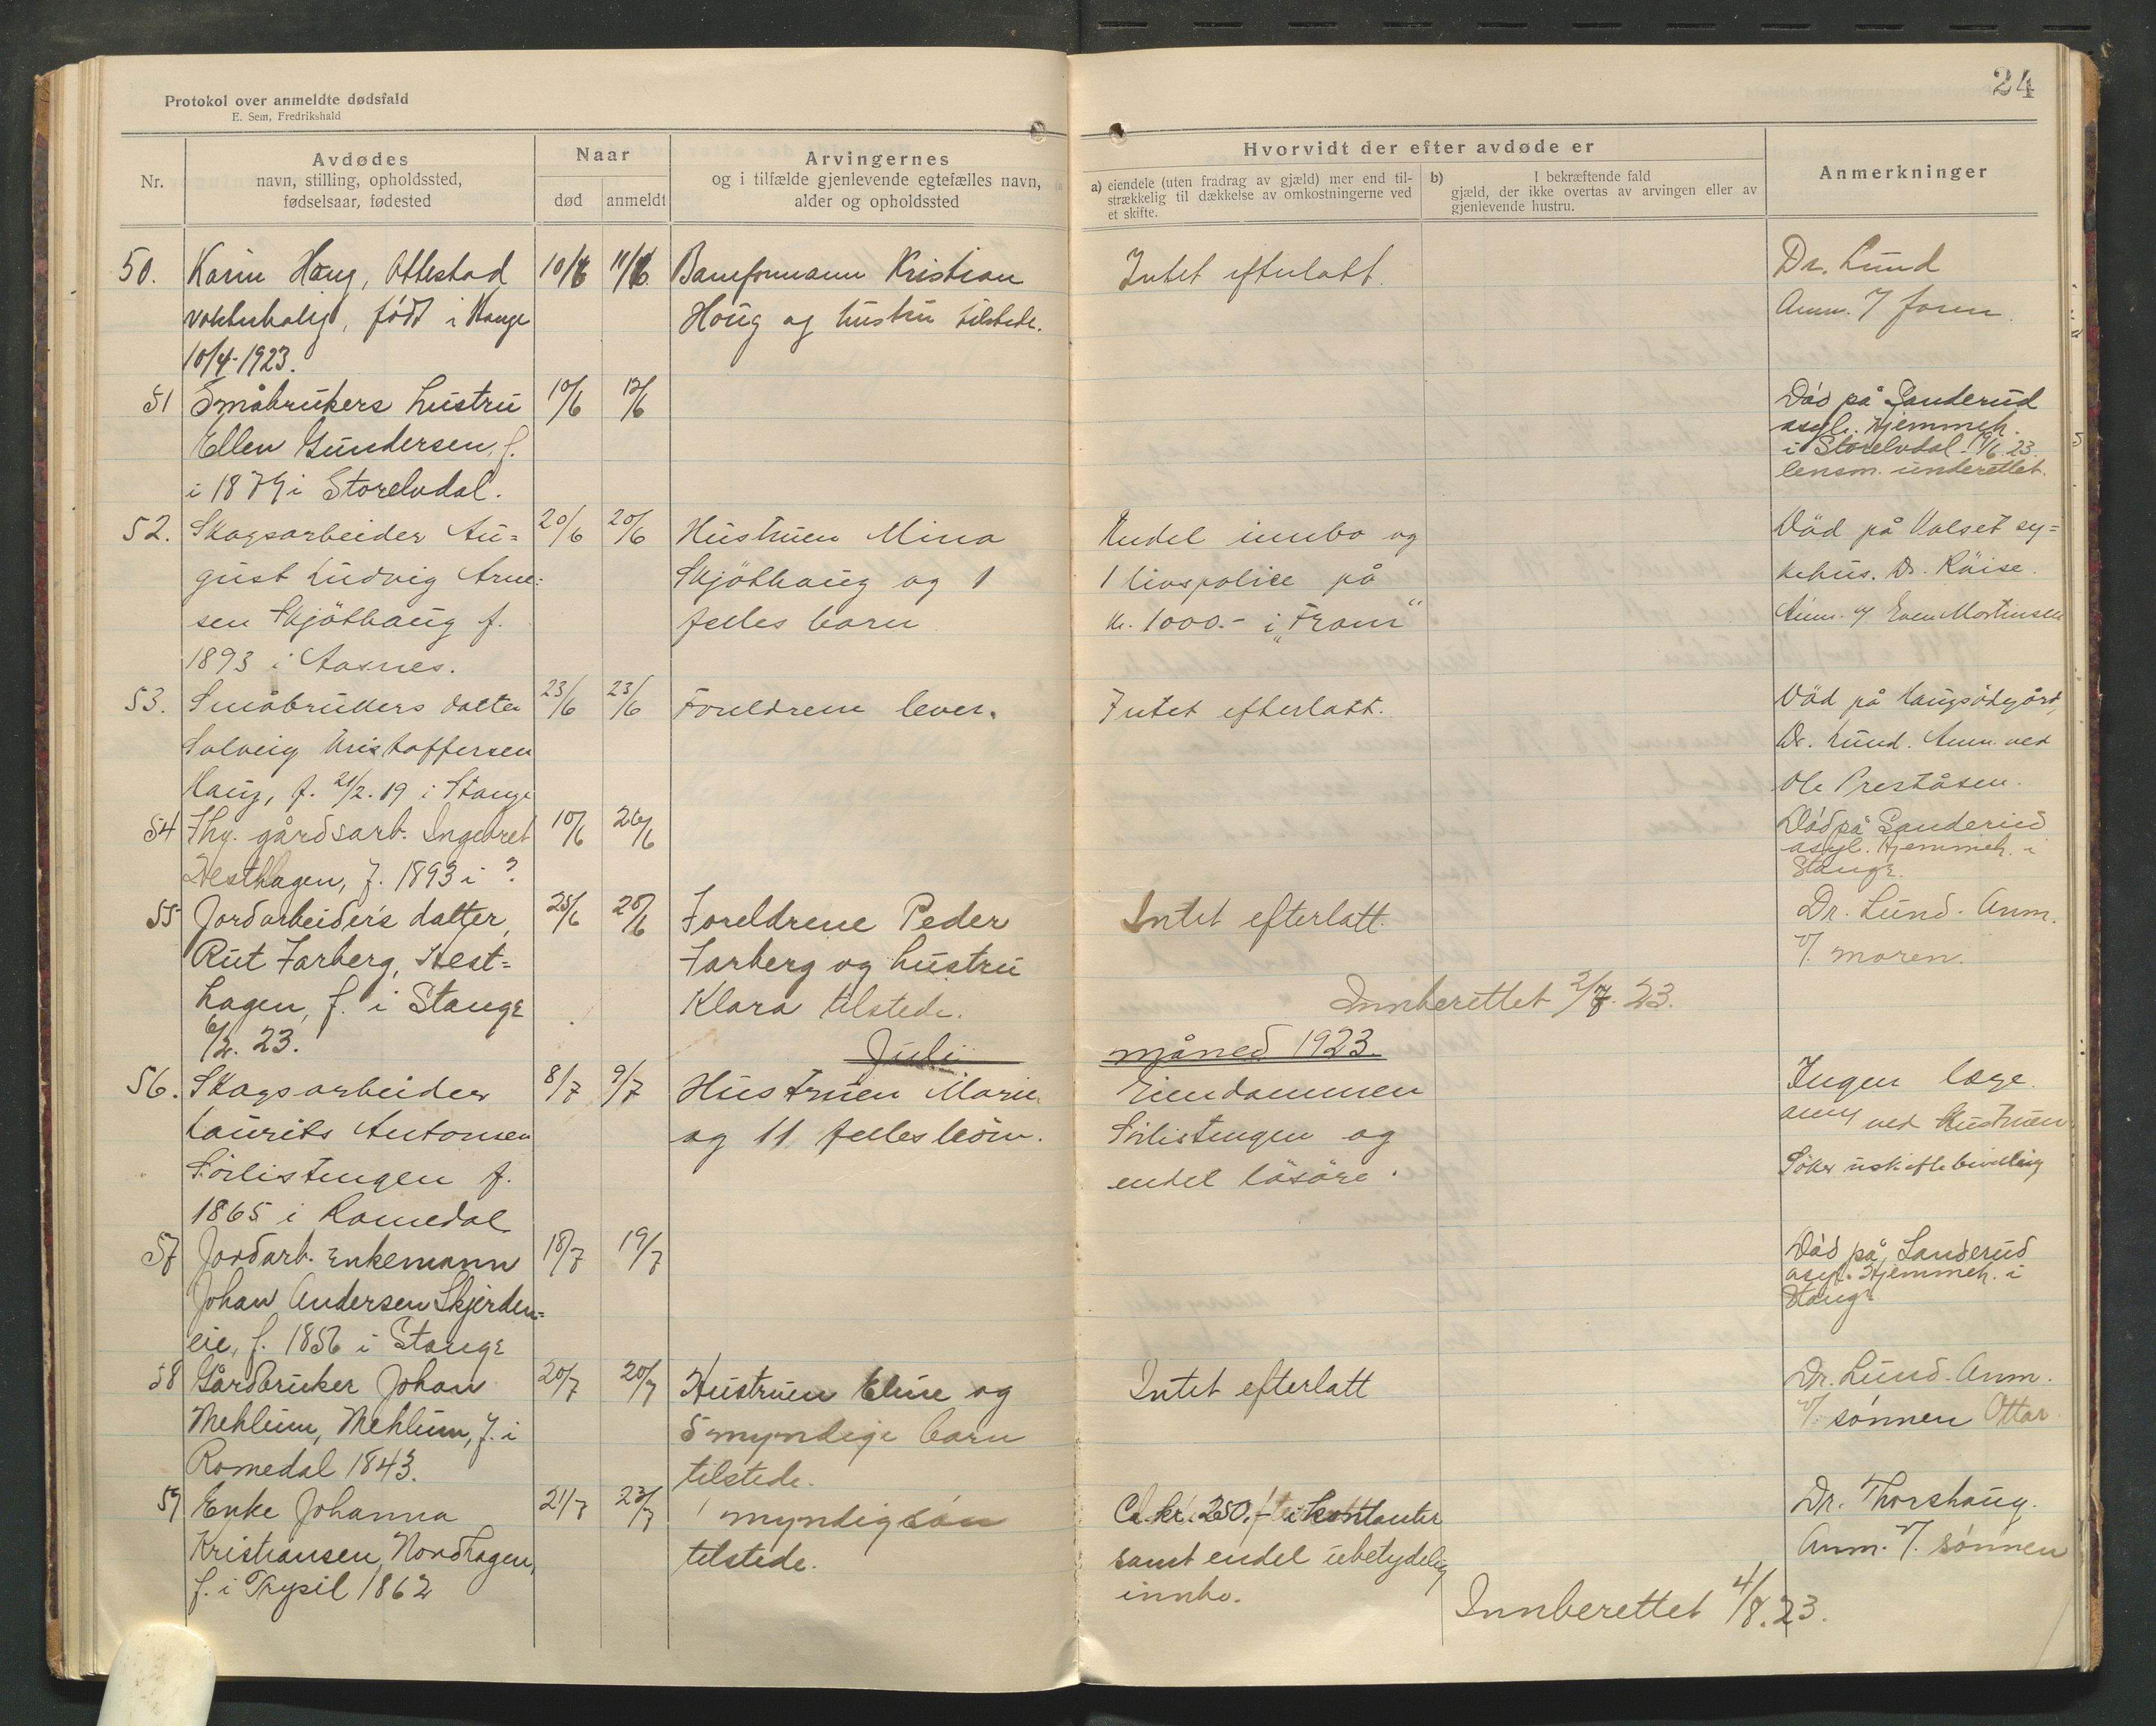 24
Protokol over anmeldte dødsfald
E. Sem, Fredrikshald
Nr.
Avdødes
navn, stilling, opholdssted,
fødselsaar, fødested
Naar
død
anmeldt
Arvingernes
og i tilfælde gjenlevende egtefælles navn,
alder og opholdssted
Hvorvidt der efter avdøde er
a) eiendele (uten fradrag av gjæld) mer end til-
strækkelig til dækkelse av omkostningerne ved
et skifte.
b) I bekræftende fald
gjæld, der ikke overtas av arvingen eller av
gjenlevende hustru.
Anmerkninger
50. Karin Haug, Ottestad 10/6 11/6 Baneformann Kristian Intet efterlatt. Dr. Lund
vokterbolig, født i Stange Houg og hustru tilstede. Anm. v/ faren.
10/4-1923.
51 Småbrukers hustru 10/6 12/6 Död på Sanderud
Ellen Gundersen, f. asyl. Hjemmeh.
i 1879 i Storelvdal. i Storelvdal. 19/6 23.
lensm. underettet.
52. Skogsarbeider Au= 20/6 20/6 Hustruen Mina Endel innbo og Död på Valset sy=
gust Ludvig Arne= Skjöthaug og 1 1 livspolice på kehus. Dr. Räise.
sen Skjöthaug f. felles barn kr. 1000.- i "Fram" Anm. v/ Even Mortinsen
1893 i Aasnes.
53. Småbrukers datter 23/6 23/6 Foreldrene lever. Intet efterlatt. Död på Haugsödegård,
Solveig Kristoffersen Dr. Lund. Anm. ved
Haug, f. 21/2.19 i Stange Ole Preståsen.
54 Fhv. gårdsarb. Ingebret 10/6 26/6 Död på Sanderud
Hesthagen, f. 1893 i ? asyl. Hjemmeh. i
Stange.
55 Jordarbeiders datter, 25/6 28/6 Foreldrene Peder Intet efterlatt. Dr. Lund. Anm.
Rut Farberg, Hest= Farberg og hustru v/. moren.
hagen, f. i Stange Klara tilstede. Innberettet 2/7. 23.
6/2. 23.
Juli måned 1923.
56. Skogsarbeider 8/7 9/7 Hustruen Marie Eiendommen Ingen læge.
Laurits Antonsen og 11 felles börn. Sörlistengen og anm ved Hustruen
Sörlistengen f. endel lösöre. Söker uskiftebevilling
1865 i Romedal
57 Jordarb. Enkemann 18/7 19/7 Död på Sanderud
Johan Andersen Skjerden= asyl. Hjemmeh. i
eie, f. 1856 i Stange Stange
58 Gårdbruker Johan 20/7 20/7 Hustruen Eline og Intet efterlatt Dr. Lund. Anm.
Mehlum, Mehlum, f. i 5 myndige barn v/. sønnen Ottar.
Romedal 1843. tilstede.
59 Enke Johanna 21/7 23/7 1 myndig søn Ca. kr. 250,- i kontanter Dr. Thorshaug.
Kristiansen, Nordhagen, tilstede. samt endel ubetydelig Anm. v/. sønnen
f. i Trysil 1862 innbo.
Innberettet 4/8. 23.